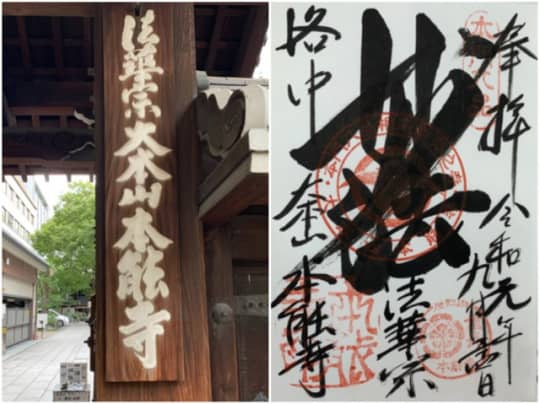 法華宗大本山本能寺
奉拝 令和元年
九月日
妙法
法華宗
洛中 大本山 本能寺